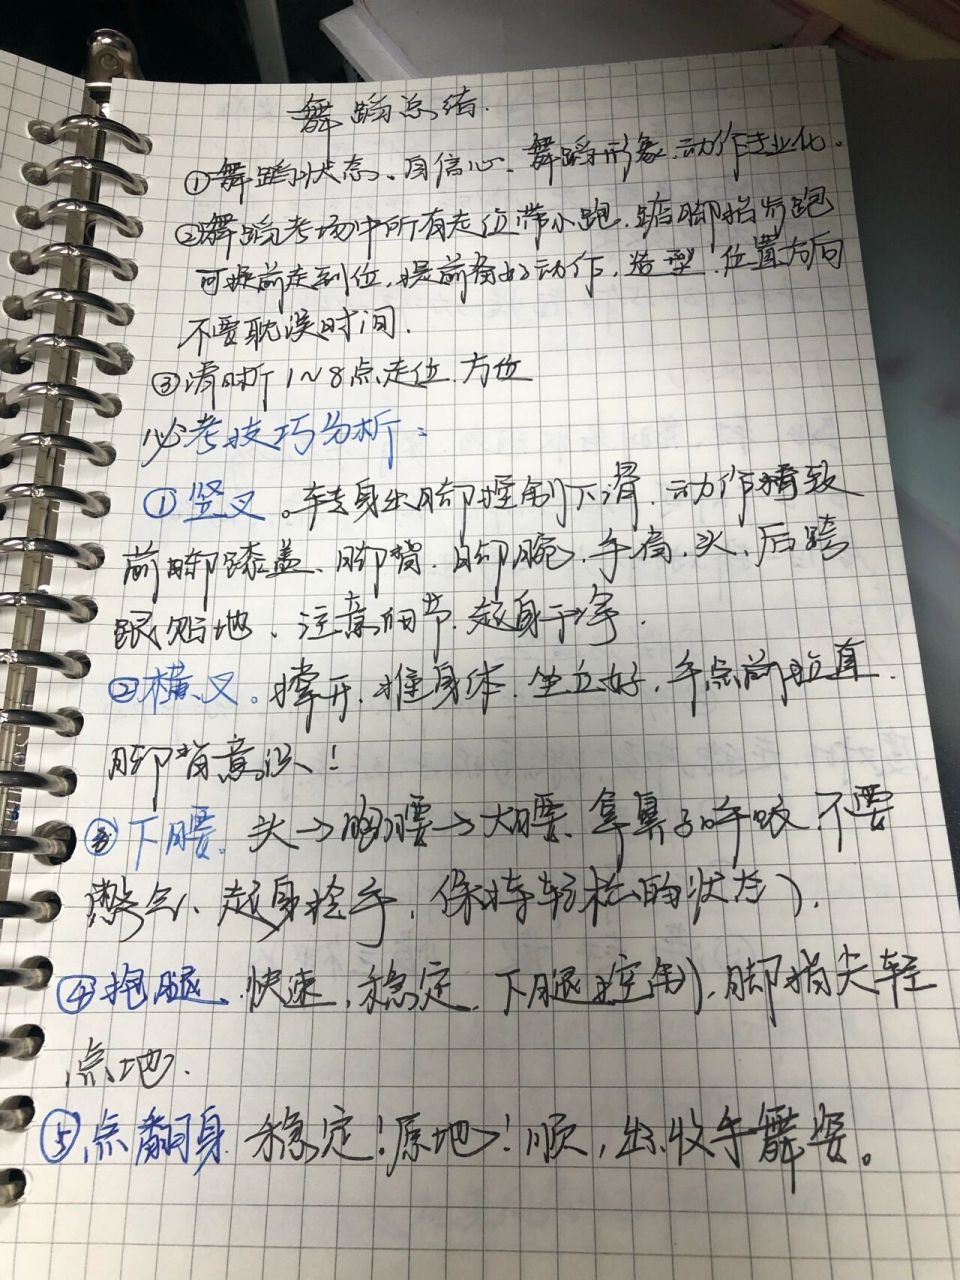 舞蹈总结.
①舞蹈状态、自信心、舞蹈形象、动作专业化.
②舞蹈考场中所有走位带小跑.踮脚指剪跑
可提前走到位,提前摆好动作,造型,位置方向
不要耽误时间.
③清晰1~8点走位.方位
必考技巧分析:
①竖叉。转身出脚控制下滑.动作精致
前脚膝盖、脚背.脚腕、手高.头、后跨
跟贴地、注意细节.起身干净.
②横叉。撑开.推身体.坐立好.手点前拉直.
脚背意识!
③下腰.头→胸腰→大腰、拿鼻子呼吸.不要
憋气、起身控手,保持轻松的状态).
④抱腿.快速,稳定.下腿控制,脚指尖轻
点地.
⑤点翻身 稳定!原地!顺,出收手舞姿。